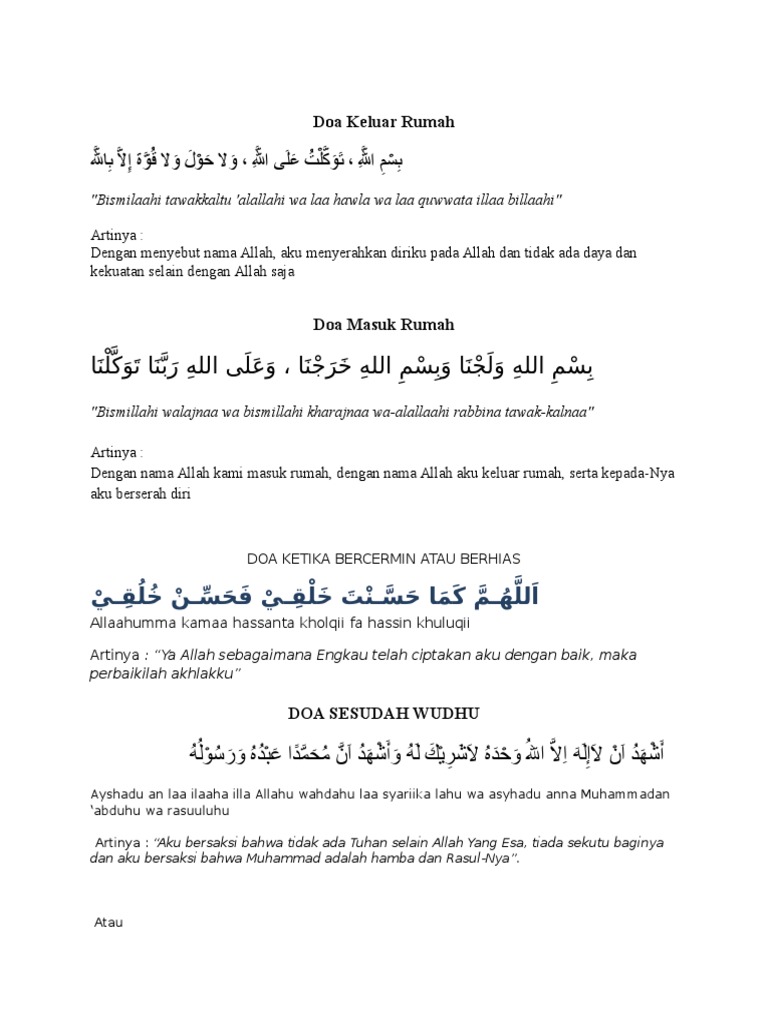 Doa Keluar Rumah
بِسْمِ اللَّهِ ، تَوَكَّلْتُ عَلَى اللَّهِ ، وَلا حَوْلَ وَلا قُوَّةَ إِلاَّ بِاللَّهِ
"Bismilaahi tawakkaltu 'alallahi wa laa hawla wa laa quwwata illaa billaahi"
Artinya :
Dengan menyebut nama Allah, aku menyerahkan diriku pada Allah dan tidak ada daya dan
kekuatan selain dengan Allah saja
Doa Masuk Rumah
بِسْمِ اللهِ وَلَجْنَا وَبِسْمِ اللهِ خَرَجْنَا ، وَعَلَى اللهِ رَبَّنَا تَوَكَّلْنَا
"Bismillahi walajnaa wa bismillahi kharajnaa wa-alallaahi rabbina tawak-kalnaa"
Artinya :
Dengan nama Allah kami masuk rumah, dengan nama Allah aku keluar rumah, serta kepada-Nya
aku berserah diri
DOA KETIKA BERCERMIN ATAU BERHIAS
اَللَّهُـمَّ كَمَا حَسَّـنْتَ خَلْقِـيْ فَحَسِّـنْ خُلُقِـيْ
Allaahumma kamaa hassanta kholqii fa hassin khuluqii
Artinya : “Ya Allah sebagaimana Engkau telah ciptakan aku dengan baik, maka
perbaikilah akhlakku”
DOA SESUDAH WUDHU
أَشْهَدُ اَنْ لاَإِلٰهَ اِلاَّ اللهُ وَحْدَهُ لاَشَرِيْكَ لَهُ وَأَشْهَدُ اَنَّ مُحَمَّدًا عَبْدُهُ وَرَسُوْلُهُ
Ayshadu an laa ilaaha illa Allahu wahdahu laa syariika lahu wa asyhadu anna Muhammadan
‘abduhu wa rasuuluhu
Artinya : “Aku bersaksi bahwa tidak ada Tuhan selain Allah Yang Esa, tiada sekutu baginya
dan aku bersaksi bahwa Muhammad adalah hamba dan Rasul-Nya”.
Atau